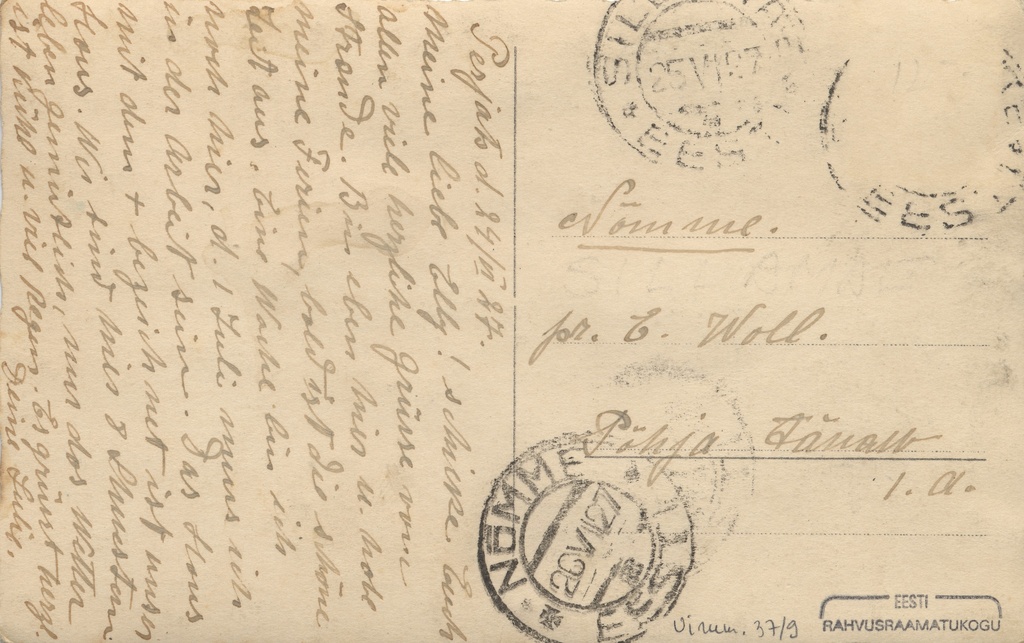 Perjats d. 24/VI 27.
Meine liebe Elly! schicke Euch
allen viele herzliche Grüsse vom
Strande. Bin eben hier u. hole
meine Ferien, bald ist die schöne
Zeit aus. Eine Woche bin ich
noch hier, d. 1 Juli muss ich
in der Arbeit sein. Das Haus
mit dem + bezeichnet ist unser
Haus. Wir sind hier 8 Personen
leben gemütlich, nur das Wetter
ist kühl u. viel Regen. Es grüsst herzl.
Deine
SILLAMÄE
25 VI 27
EESTI
EESTI
Nõmme.
pr. E. Woll.
Põhja tänaw
1. a.
NÕMME
26 VI 27
EESTI
Virum. 37/9
EESTI
RAHVUSRAAMATUKOGU